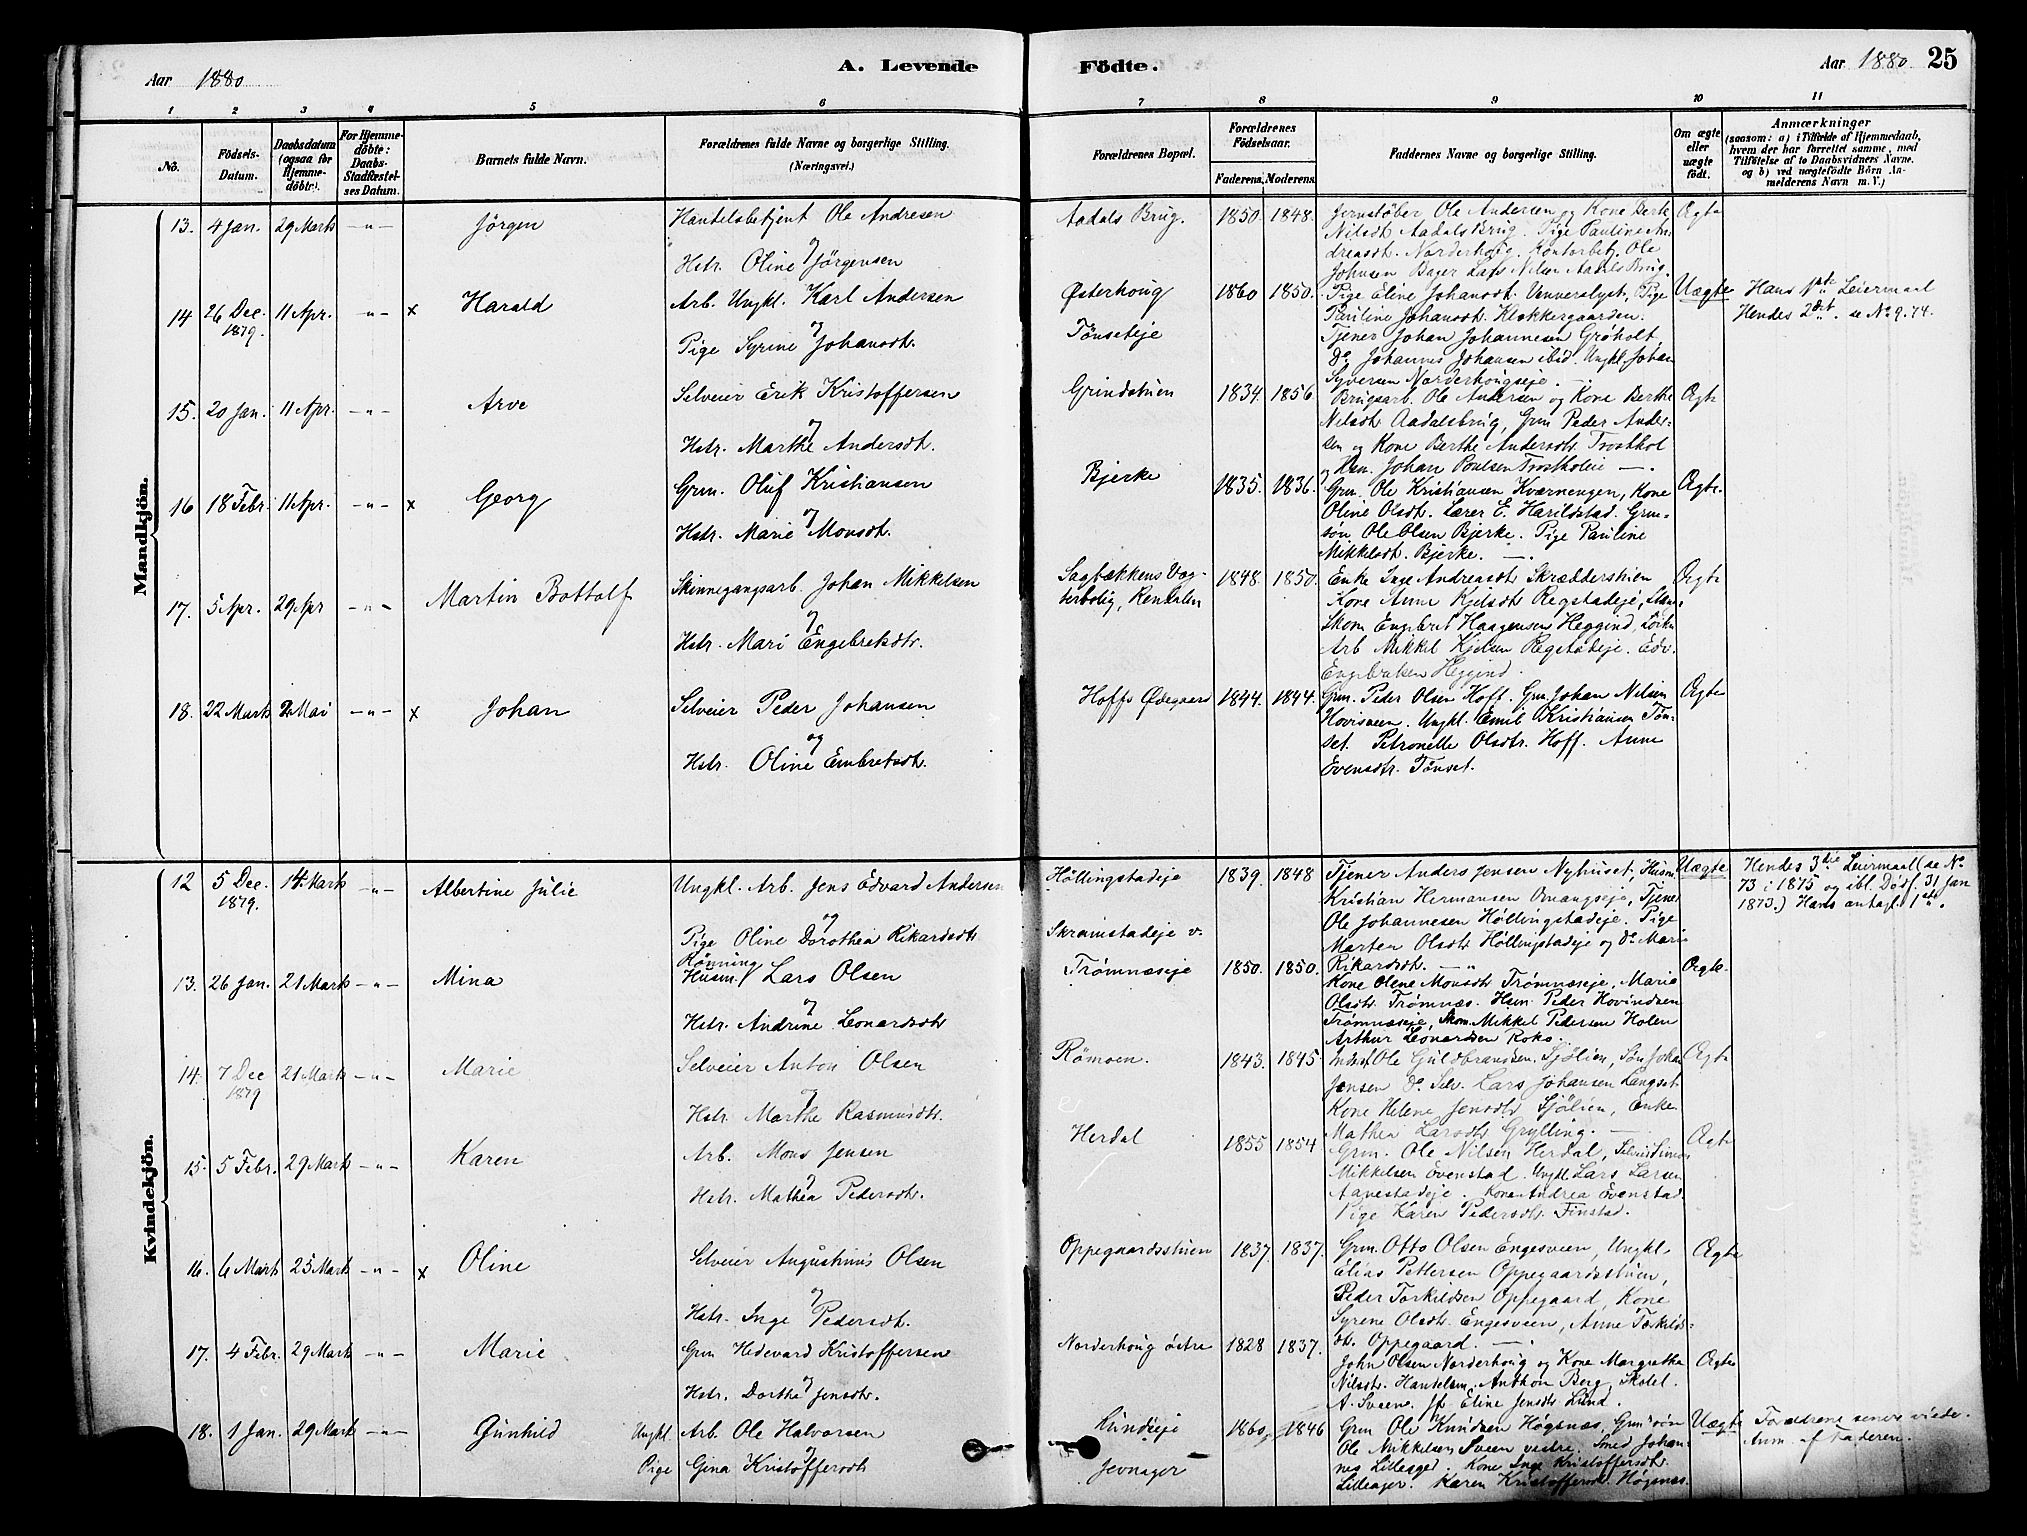 Aar 1880
A. Levende Födte.
Aar 1880
25
1 2 3 4 5 6 7 8 9 10 11
No.
Födsels-Datum.
Daabsdatum (ogsaa for Hjemme-döbte).
For Hjemme-döbte: Daabs-Stadfæstel-ses Datum.
Barnets fulde Navn.
Forældrenes fulde Navne og borgerlige Stilling.
(Næringsvei.)
Forældrenes Bopæl.
Forældrenes Födselsaar.
Faderens. Moderens.
Faddernes Navne og borgerlige Stilling.
Om ægte eller uægte födt.
Anmærkninger
(saasom: a) i Tilfælde af Hjemmedaab,
hvem der har forrettet samme, med
Tilföielse af to Daabsvidners Navne.
og b) ved uægtefödte Börn An-
melderens Navn m. V.)
Mandkjön.
13. 4 Jan. 29 Marts —„— Jörgen
Handelsbetjent Ole Andresen
og
Hstr. Oline Jörgensen
Aadals Brug. 1850. 1848.
Jernstøber Ole Andersen og Kone Berte
Nilsdt. Aadals Brug. Pige Pauline An-
dreasdt. Norderhoug. Kontorbetj. Ole
Johnsen Bager Lars Nilsen Aadals Brug.
Ægte
14 26 Dec. 1879. 11 Apr. —„— x Harald
Arb. Ungkl. Karl Andersen
og
Pige Syrine Johansdt.
Østerhoug
Tönseteje
1860 1850.
Pige Eline Johansdt. Pige
Pauline Johansdt. Klokkergaarden.
Tjener Johan Johannesen Grøholt,
Do. Johannes Johansen ibid. Ungkl. Johan
Syversen Norderhougseje. —
Uægte
Hans 1ste Leiermaal
Hendes 2det. se No 9. 74.
15. 20 Jan. 11 Apr. —„— Arve
Selveier Erik Kristoffersen
og
Hstr. Marthe Andersdt.
Grindstuen 1834. 1856
Brugsarb. Ole Andersen og Kone Berthe
Nilsdt Aadalsbrug, Grm Peder Ander-
sen og Kone Berthe Andersdtr Trosthol
og Hsm. Johan Poulsen Trostholeie —.
Ægte
16 18 Febr. 11 Apr. —„— x Georg
Grm. Oluf Kristiansen
og
Hstr. Marie Monsdt.
Bjerke 1835. 1836.
Grm. Ole Kristiansen Kværnengen, Kone
Oline Olsdt. Lærer E. Harildstad. Grm-
søn Ole Olsen Bjerke. Pige Pauline
Mikkelsdt. Bjerke. —.
Ægte.
17. 5 Apr. 29 Apr —„— Martin Bottolf
Skinnegangsarb. Johan Mikkelsen
og
Hstr. Mari Engebretsdtr.
Sagbækkens Vog-
terbolig, Rendalen
1848. 1850.
Enke Inge Andreasdtr Skrædderstuen
Kone Anne Kjelsdtr Regstadeje,
Skom Engebret Haagensen Heggind,
Arb Mikkel Kjelsen Regstadeje. Edv.
Engebretsen Heggind.
Ægte
18. 22 Marts 2 Mai —„— x Johan
Selveier Peder Johansen
og
Hstr. Oline Embretsdt.
Hoffs Ødegaard 1844. 1844.
Grm. Peder Olsen Hoff. Grm Johan Nilsen
Hovisveen. Ungkl. Emil Kristiansen Tön-
set. Petronelle Olsdtr. Hoff. Anne
Evensdtr. Tönset.
Ægte
Kvindekjön.
12 5 Dec. 1879. 14 Marts —„— Albertine Julie
Ungkl. Arb. Jens Edvard Andersen
og
Pige Oline Dorothea Rikardsdtr.
Rønning
Höllingstadeje
Skramstadeje v.
1839. 1848
Tjener Anders Jensen Nyhuset, Husm.
Kristian Hermansen Omangseje, Tjener
Ole Johannesen Höllingstadeje. Pige
Marten Olsdtr Höllingstadeje og do. Marie
Rikardsdt. —„
Uægte
Hendes 3die Leiermaal (se No
73 i 1875 og ibl. Dødf. 31 Jan
1873.) Hans antagl. 1ste.
13. 26 Jan. 21 Marts —„— Mina
Husm. Lars Olsen
og
Hstr. Andrine Leonardsdtr
Trømnæseje 1850. 1850.
Kone Olene Monsdt Trømnæseje, Marie
Olsdtr. Trømnæs. Hsm. Peder Hovindsen
Trømnæseje, Skom. Mikkel Pedersen Holen
Arthur Leonardsen Roko.
Ægte.
14. 7 Dec 1879 21 Marts —„— Marie
Selveier Anton Olsen
og
Hstr. Marthe Rasmusdtr.
Römoen. 1843. 1845
Inderst Ole Guldbrandsen Sjölien, Søn Johan
Jensen do. Selv. Lars Johansen Langset.
Kone Helene Jensdtr Sjölien, Enke
Mathea Larsdtr Grylling. —
Ægte
15. 5 Febr. 29 Marts —„— Karen
Arb. Mons Jensen
og
Hstr. Mathea Pedersdtr.
Herdal 1855 1854
Grm. Ole Nilsen Herdal, Selveier Simen
Mikkelsen Evenstad. Ungkl Lars Larsen
Aanestadeje. Kone Andrea Evenstad.
Pige Karen Pedersdtr. Finstad.
Ægte
16. 6 Marts 25 Marts —„— x Oline
Selveier Augustinus Olsen
og
Hstr. Inge Pedersdt.
Oppegaardsstuen 1837. 1837.
Grm. Otto Olsen Engesveen, Ungkl.
Elias Pettersen Oppegaardsstuen,
Peder Torkildsen Oppegaard, Kone
Syrene Olsdtr. Engesveen, Anne Torkilds-
dtr. Oppegaard. —.
Ægte
17. 4 Febr. 29 Marts —„— Marie
Grm Hedevard Kristoffersen
og
Hstr. Dorthe Jensdtr.
Norderhoug östre 1828 1837.
John Olsen Norderhoug og Kone Margrethe
Nilsdtr. Handelsm. Anthon Berg, Skolel.
A. Sveene. Jf Eline Jensdtr Lund.
Ægte
18. 1 Jan. 29 Marts —„— Gunhild
Ungkl Arb. Ole Halvorsen
og
Pige Gina Kristoffersdtr
Lundseje
Jevnager
1860. 1846
Grm Ole Knudsen Høgsnæs, Grm søn
Ole Mikkelsen Sveen vestre. Smed Johan-
nes Lilleager. Kone Inge Kristoffersdtr.
Lilleager. Karen Kristoffersdt. Högsnæs.
Uægte
Forældrene senere viede.
Anm. af Faderen.